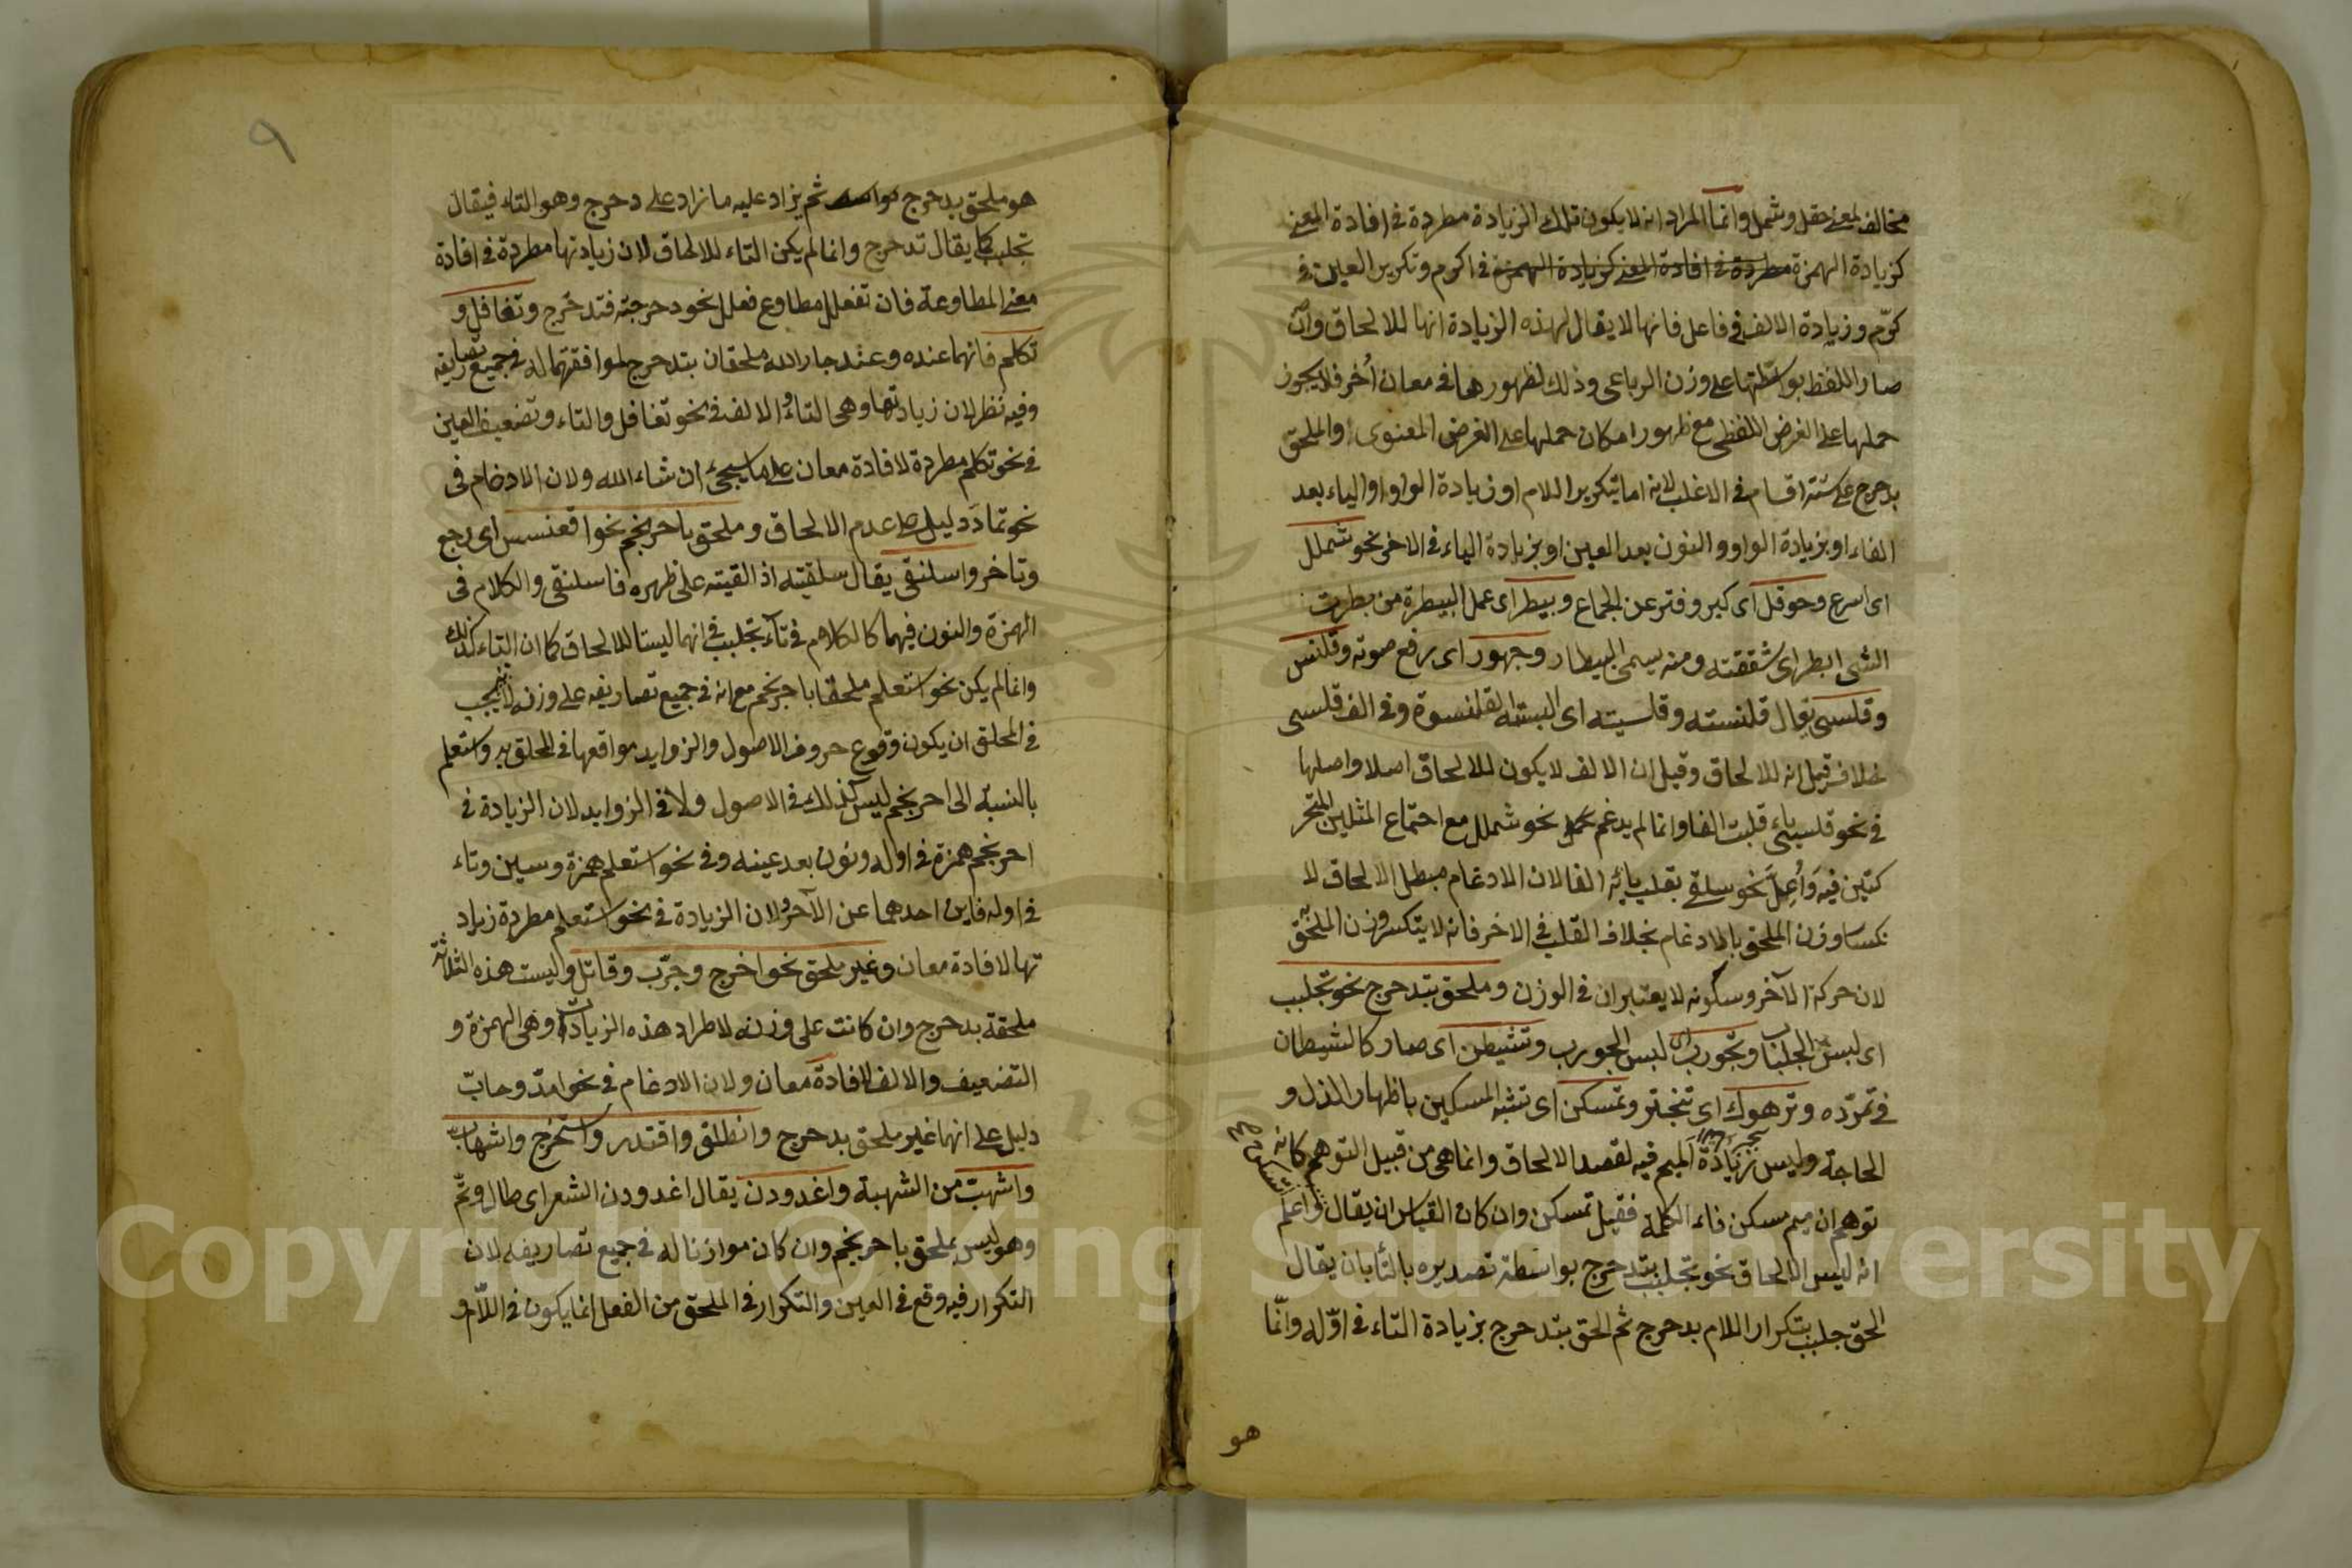 مخالف لمعنى حقل وشمل وانما المراد انه لا يكون تلك الزيادة مطردة فى افادة المعنى
كزيادة الهمزة مطردة فى افادة المعنى كزيادة الهمزة فى اكرم وتكرير العين فى
كرّم وزيادة الالف فى فاعل فانها لا يقال لهذه الزيادة انها للالحاق وان
صار اللفظ بواسطتها على وزن الرباعى وذلك لظهورها فى معان اُخر فلا يجوز
حملها على الغرض اللفظى مع ظهور امكان حملها على الغرض المعنوى والملحق
بدحرج على ستة اقسام فى الاغلب لانه اما بتكرير اللام او زيادة الواو او الياء بعد
الفاء او بزيادة الواو والنون بعد العين او بزيادة الياء فى الاخر نحو شملل
اى اسرع وحوقل اى كبر وفتر عن الجماع وبيطر اى عمل البيطرة من بطرت
الشى ابطر اى شققته ومنه يسمى البيطار وجهور اى رفع صوته وقلنس
وقلسى يقال قلنسته وقلسيته اى البسته القلنسوة وفى الف قلسى
خلاف قيل انه للالحاق وقيل ان الالف لا يكون للالحاق اصلا واصلها
فى نحو قلسى ياء قلبت الفا وانما لم يدغم نحو شملل مع اجتماع المثلين المتحر
كين فيه وَاُعِلَّ نحو سلقى بقلب يائه الفا لان الادغام مبطل الالحاق لا
نكسار وزن الملحق بالادغام بخلاف القلب فى الاخر فانه لا ينكسر وزن الملحق به
لان حركة الآخر وسكونه لا يعتبران فى الوزن وملحق بتدحرج نحو تجلبب
اى لبس الجلباب وتجورب اى لبس الجورب وتشيطن اى صار كالشيطان
فى تمرّده وترهوك اى تبختر وتمسكن اى تشبه المسكين باظهار الذل و
الحاجة وليس زيادة الميم فيه لقصد الالحاق وانما هى من قبيل التوهم كانه
توهم ان ميم مسكن فاء الكلمة فقيل تمسكن وان كان القياس ان يقال واعلم
انه ليس الالحاق نحو تجلبب بتدحرج بواسطة تصديره بالتاء بان يقال
الحق جلبب بتكرار اللام بدحرج ثم الحق بتدحرج بزيادة التاء فى اوّله وانّما
هو
٩
هو ملحق بدحرج ثم يزاد عليه ما زاد على دحرج وهو التاء فيقال
تجلبب كما يقال تدحرج وانما لم يكن التاء للالحاق لان زيادتها مطردة فى افادة
معنى المطاوعة فان تفعلل مطاوع فعلل نحو دحرجته فتدحرج وتغافل و
تكلم فانهما عنده وعند جار الله ملحقان بتدحرج لموافقتهما له فى جميع تصاريفه
وفيه نظر لان زيادتها وهى التاء والالف فى نحو تغافل والتاء وتضعيف العين
فى نحو تكلم مطردة لافادة معان على ما سيجئ ان شاء الله ولان الادغام فى
نحو تمادَّ دليل على عدم الالحاق وملحق باحرنجم نحو اقعنسس اى رجع
وتاخر واسلنقى يقال سلقيته اذ القيته على ظهره فاسلنقى والكلام فى
الهمزة والنون فيهما كالكلام فى تآء تجلبب فى انهما ليستا للالحاق كما ان التاء كذلك
وانما لم يكن نحو استعلم ملحقا باحرنجم مع انه فى جميع تصاريفه على وزنه لانه يجب
فى الملحق ان يكون وقوع حروف الاصول والزوايد مواقعها فى الملحق به واستعلم
بالنسبة الى احرنجم ليس كذلك فى الاصول ولا فى الزوايد لان الزيادة فى
احرنجم همزة فى اوله ونون بعد عينه وفى نحو استعلم همزة وسين وتاء
فى اوله فاين احدهما عن الآخر ولان الزيادة فى نحو استعلم مطردة زياد
تها لافادة معان وغير ملحق نحو اخرج وجرّب وقاتل وليست هذه الثلاثة
ملحقة بدحرج وان كانت على وزنه لاطراد هذه الزيادات وهى الهمزة و
التضعيف والالف لافادة معان ولان الادغام فى نحو امدّ وحابّ
دليل على انهما غير ملحق بدحرج وانطلق واقتدر واستخرج واشهابّ
واشهبّ من الشهبة واغدودن يقال اغدودن الشعر اى طال وتمّ
وهو ليس بملحق باحرنجم وان كان موازنا له فى جميع تصاريفه لان
التكرار فيه وقع فى العين والتكرار فى الملحق من الفعل انما يكون فى اللّام و
Copyright © King Saud University
195